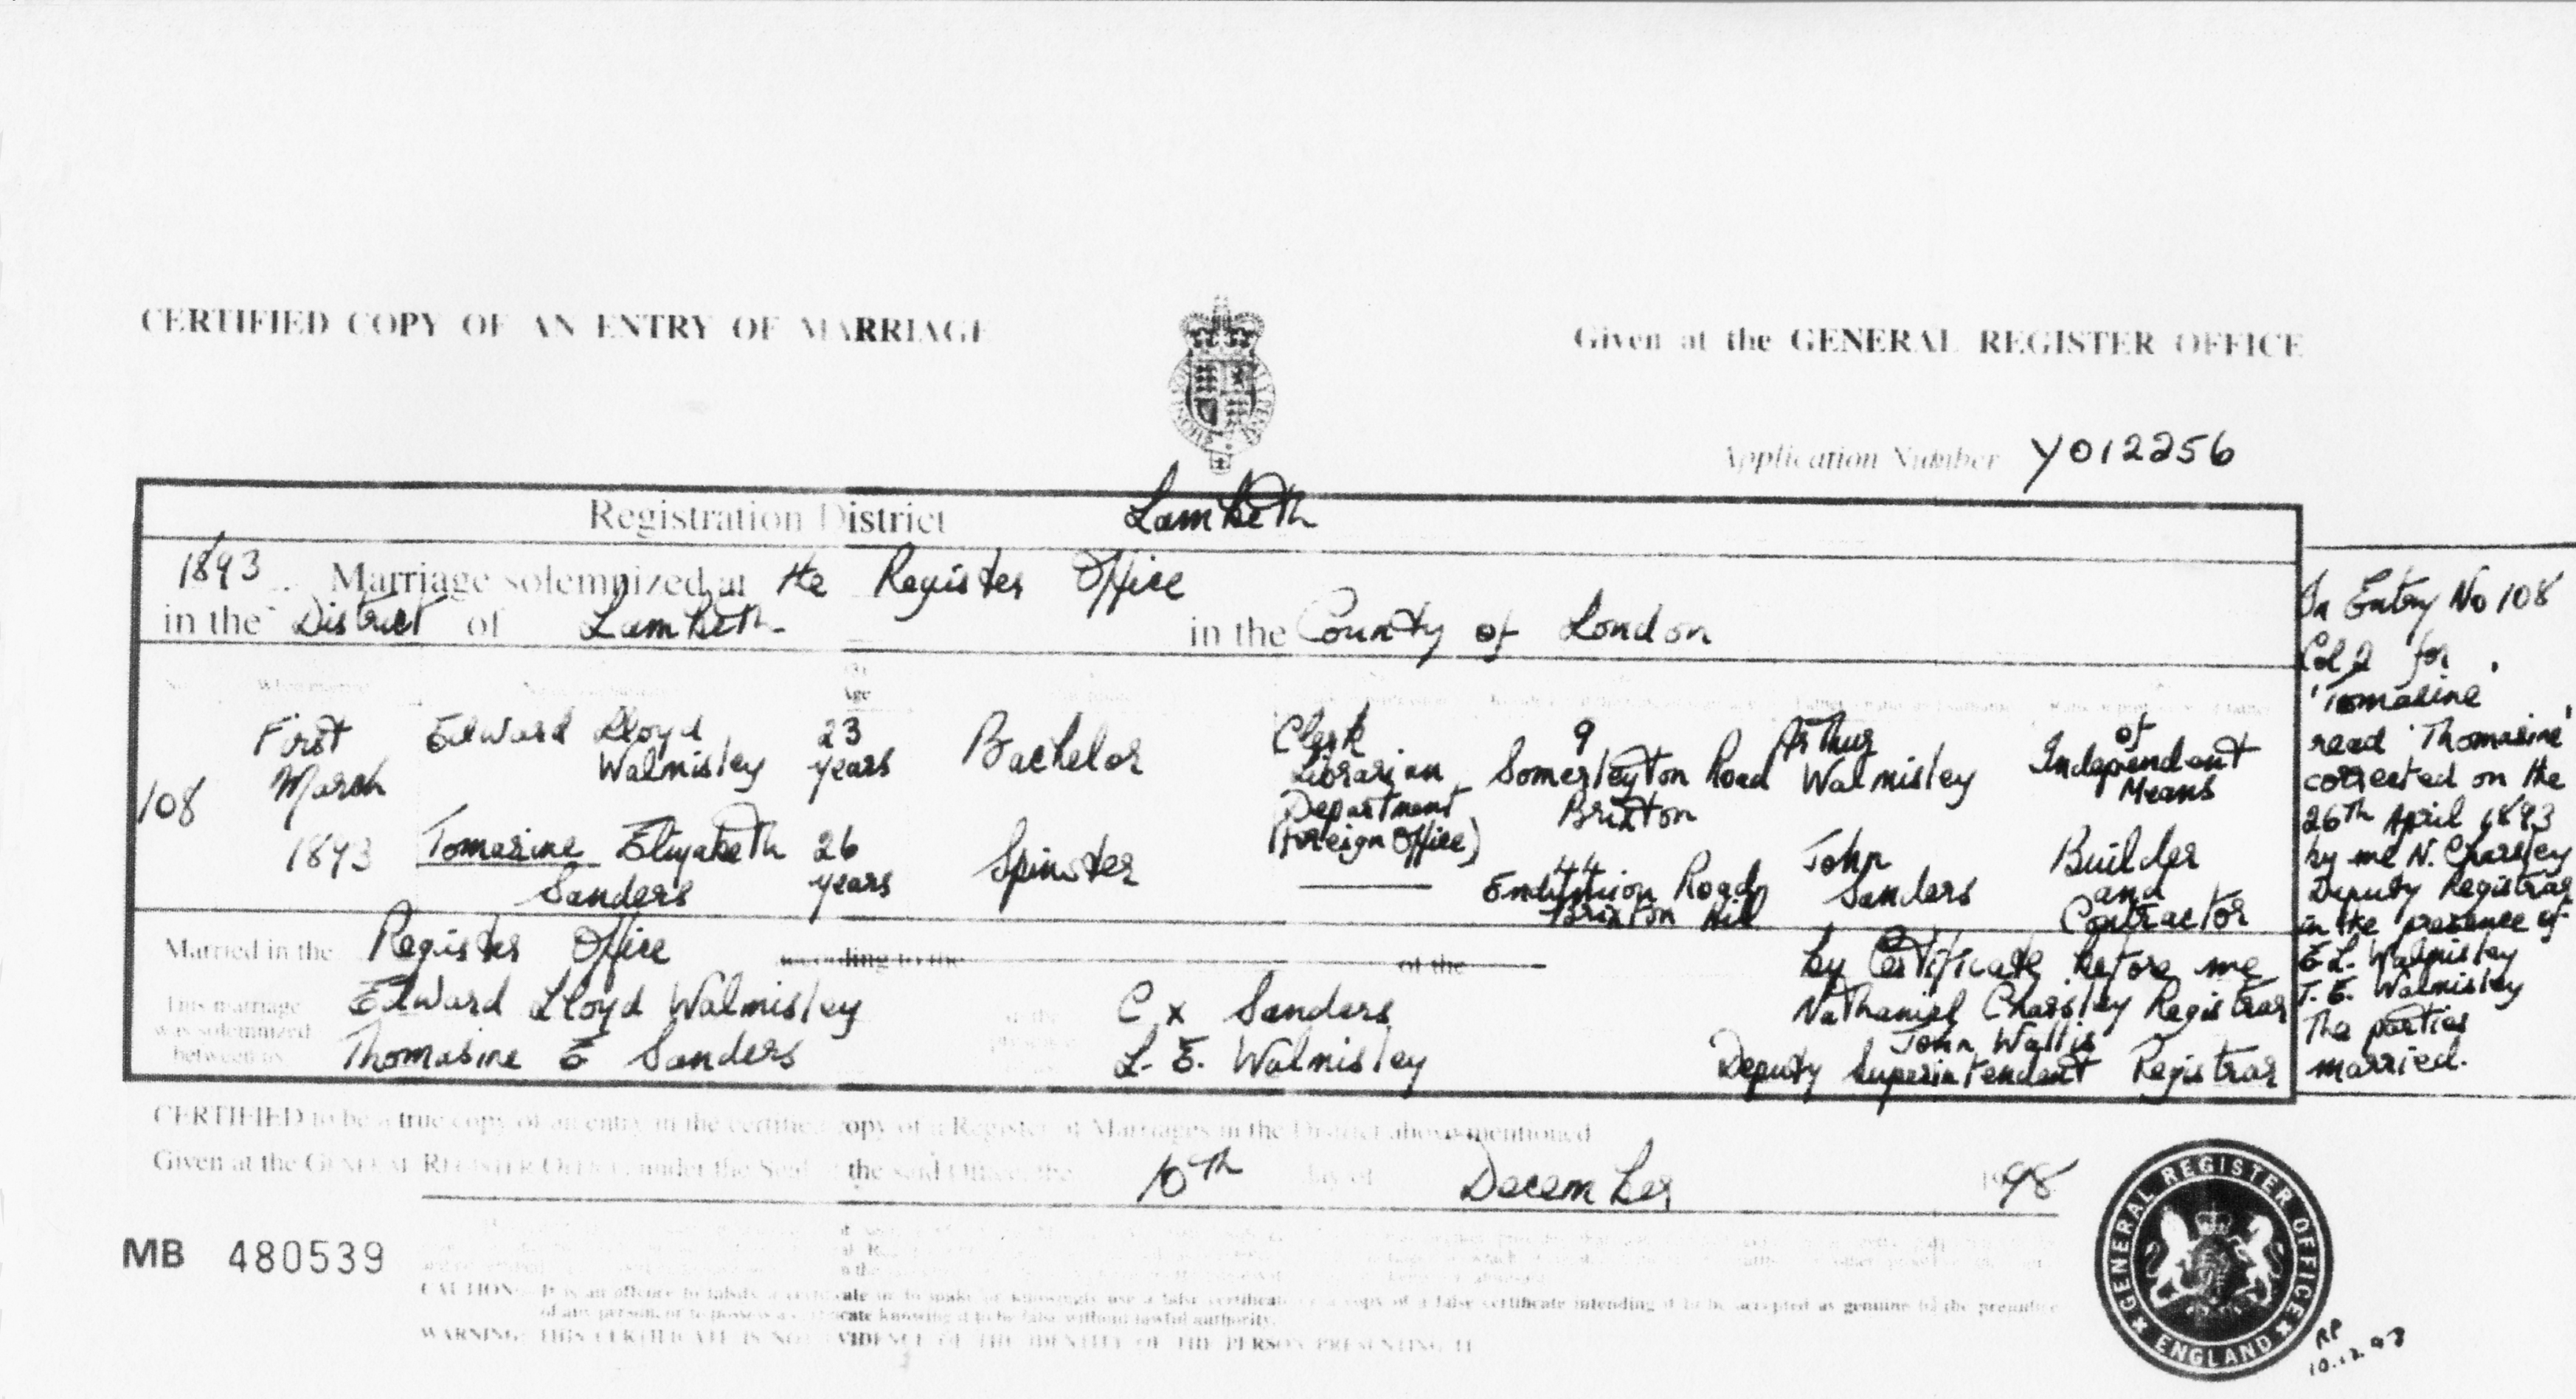 CERTIFIED COPY OF AN ENTRY OF MARRIAGE
Given at the GENERAL REGISTER OFFICE
Application Number Y012256
Registration District Lambeth
1893 Marriage solemnized at the Register Office
in the District of Lambeth in the County of London
When married
Age
108
First March 1893
Edward Lloyd Walmisley
23 years
Bachelor
Clerk Librarian Department (Foreign Office)
9 Somerleyton Road Brixton
Arthur Walmisley
of Independent Means
Tomasine Elizabeth Sanders
26 years
Spinster
44 Endymion Road Brixton Hill
John Sanders
Builder and Contractor
Married in the Register Office according to the of the
by Certificate before me
This marriage was solemnized between us
Edward Lloyd Walmisley
Thomasine E Sanders
in the presence of
C x Sanders
L. E. Walmisley
Nathaniel Charsley Registrar
John Wallis
Deputy Superintendent Registrar
In Entry No 108
Col 2 for
'Tomasine'
read 'Thomasine'
corrected on the
26th April 1893
by me N. Charsley
Deputy Registrar
in the presence of
E L. Walmisley
T. E. Walmisley
The parties
married.
CERTIFIED to be a true copy of an entry in the certified copy of a Register of Marriages in the District above mentioned
Given at the GENERAL REGISTER OFFICE, under the Seal of the said Office, the 10th day of December 1998
MB 480539
CAUTION: It is an offence to falsify a certificate or to make or knowingly use a false certificate or a copy of a false certificate intending it to be accepted as genuine to the prejudice
of any person, or to possess a certificate knowing it to be false without lawful authority.
WARNING: THIS CERTIFICATE IS NOT EVIDENCE OF THE IDENTITY OF THE PERSON PRESENTING IT
GENERAL REGISTER OFFICE
ENGLAND
RP
10.12.98